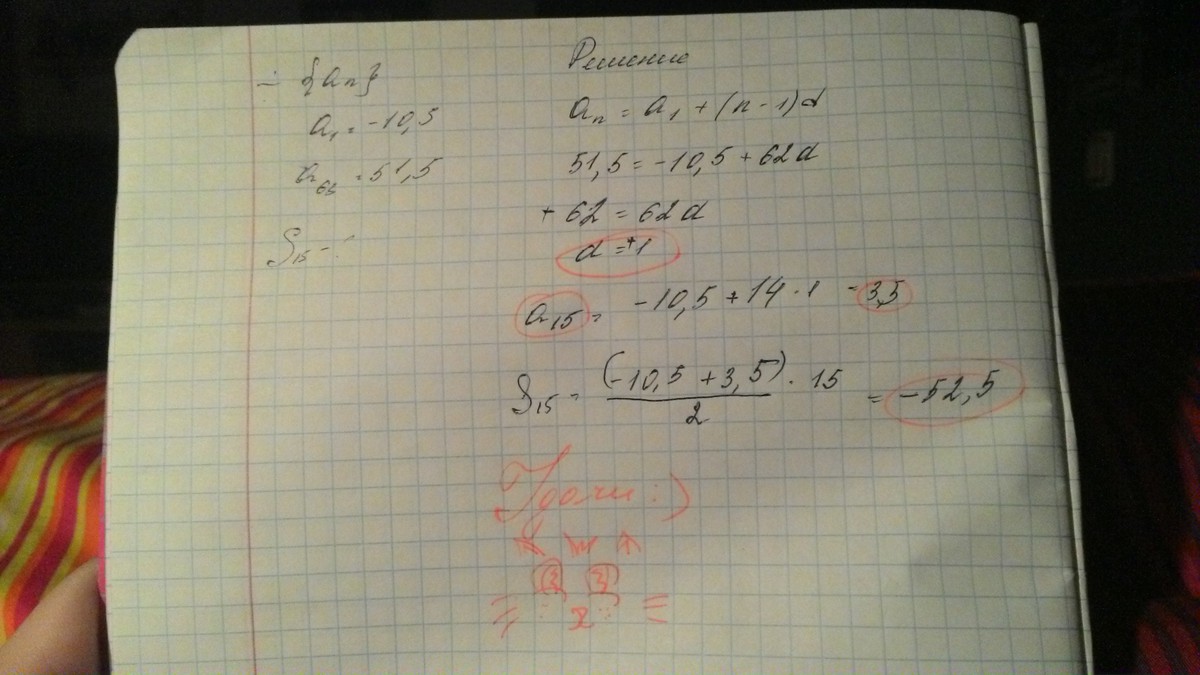 ÷ {an}
a₁ = -10,5
a₆₃ = 51,5
S₁₅ - ?
Решение
aₙ = a₁ + (n - 1)d
51,5 = -10,5 + 62d
+ 62 = 62d
d = +1
a₁₅ = -10,5 + 14 · 1 = 3,5
S₁₅ = (-10,5 + 3,5) · 15 / 2 = -52,5
Удачи :)